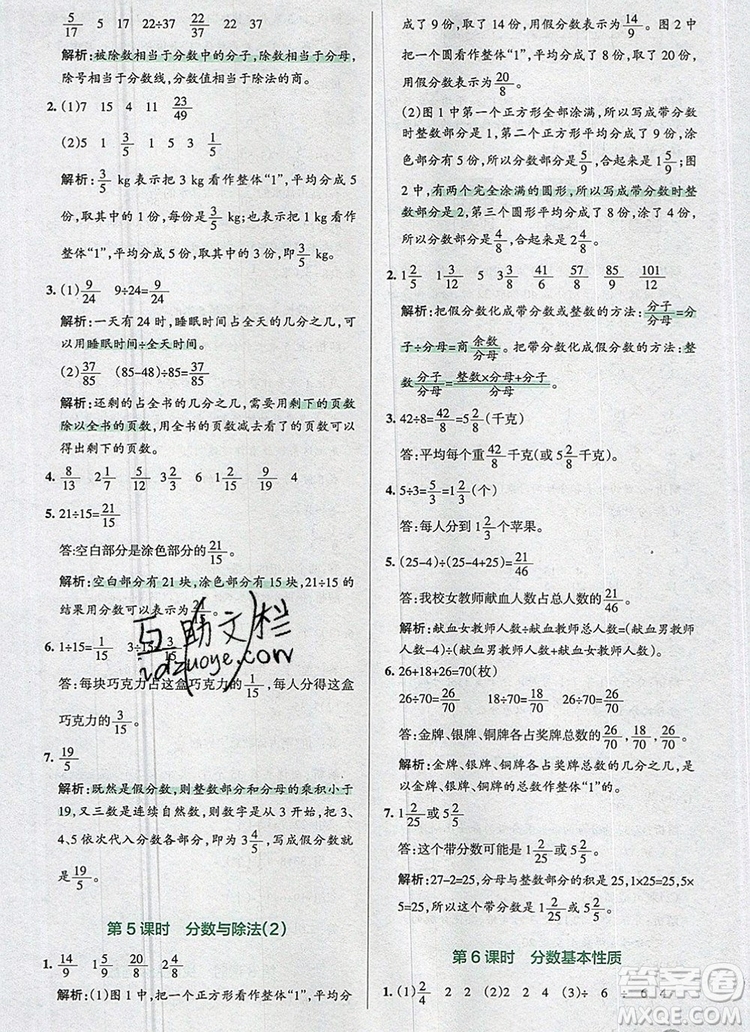 5/17 5 17 22÷37 19/5 22/37
解析:被除数相当于分数中的分子,除数相当于分母,
除号相当于分数线,分数值相当于除法的商。
2. (1)7 15 4 11 23/49
(2)5 1 3/5 1 1/5
解析:3/5 kg表示把1 kg看作整体“1”,平均分成5
份,取其中的3份;把3 kg看作整体“1”,平均分成5
份,取其中的1份,每份是3/5 kg;把1 kg看作
整体“1”,平均分成5份,取其中的3份,即3/5 kg。
3. (1)9/24 9÷24=9/24
解析:一天有24时,睡眠时间占全天的几分之几,可
以用睡眠时间÷全天时间。
(2)37/85 (85-48)÷85=37/85
解析:还剩的占全书的几分之几,需要用剩下的页数
除以全书的页数,用全书的页数减去看了的页数可以
得出剩下的页数。
4. 8/13 2 1/7 3 2/3 6 1 4/9
5. 21÷15=21/15
答:空白部分是涂色部分的21/15。
解析:空白部分有21块,涂色部分有15块,21÷15的
结果用分数可以表示为21/15。
6. 1÷15=1/15 3÷15=3/15
答:每块巧克力占这盒巧克力的1/15,每人分得这盒
巧克力的3/15。
7. 19/5
解析:既然是假分数,则整数部分和分母的乘积小于
19,又三数是连续自然数,所以从3开始,把3、
4、5依次代入分数各部分,即为3 4/5,写成假分数就
是19/5。
第5课时 分数与除法(2)
1. 14/9 1 5/9 20/8 2 4/8
解析:(1)图1中,把一个正方形看作整体“1”,平均分
成了9份,取了14份,用假分数表示为14/9。图2中
把一个圆看作整体“1”,平均分成了8份,取了20份,
用假分数表示为20/8。
(2)图1中第一个正方形全部涂满,所以写成带分数
时整数部分是1,第二个正方形平均分成了9份,涂
色部分有5份,分数部分是5/9,合起来是1 5/9;图
2中,有两个完全涂满的圆形,所以写成带分数时整
数部分是2,第三个圆形平均分成了8份,涂了4份,
所以分数部分是4/8,合起来是2 4/8。
2. 1 2/5 1 3/12 5 3/5 41/6 57/8 85/9 101/12
解析:把假分数化成带分数或整数的方法:分子/分母=分
子÷分母=商余数/分母。把带分数化成假分数的方法:整
数分子/分母=整数×分母+分子/分母。
3. 42÷8=42/8=5 2/8(千克)
答:平均每个重42/8千克(或5 2/8千克)。
4. 5÷3=5/3=1 2/3(个)
答:每人分到1 2/3个苹果。
5. (25-4)÷(25-4+25)=21/46
答:我校女教师献血人数占总人数的21/46。
解析:献血女教师人数÷献血总人数=献血女教师
人数÷(献血女教师人数+献血男教师人数)。
6. 26+18+26=70(枚)
26÷70=26/70 18÷70=18/70 26÷70=26/70
答:金牌、银牌、铜牌各占奖牌总数的26/70,18/70,26/70。
解析:金牌、银牌、铜牌各占奖牌总数的几分之几,
是以金牌、银牌、铜牌的总数作整体“1”的。
7. 1 2/25或5 2/5
答:这个带分数可能是1 2/25或5 2/5。
解析:27-2=25,分母与整数部分的积是25,25=5×
5=25×1,所以这个带分数可能是1 2/25或5 2/5。
第6课时 分数基本性质
1. (1)2/4 2 2 (2)2 4 (3)÷ 6 ÷ 6
互助文栏
idzuoye.com
答案圈
MXQE.COM